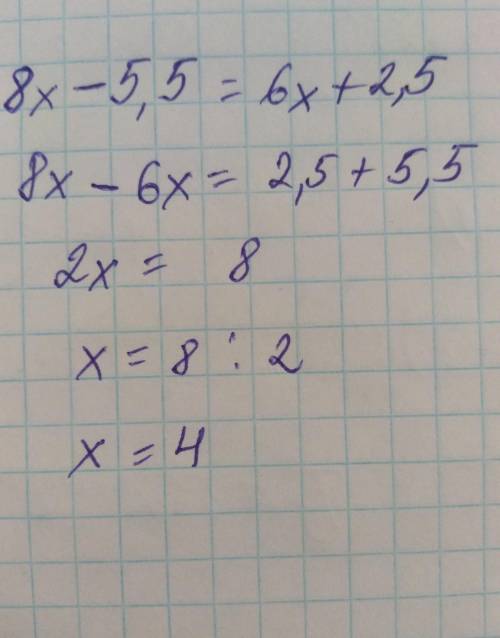 8x - 5,5 = 6x + 2,5
8x - 6x = 2,5 + 5,5
2x = 8
x = 8 : 2
x = 4